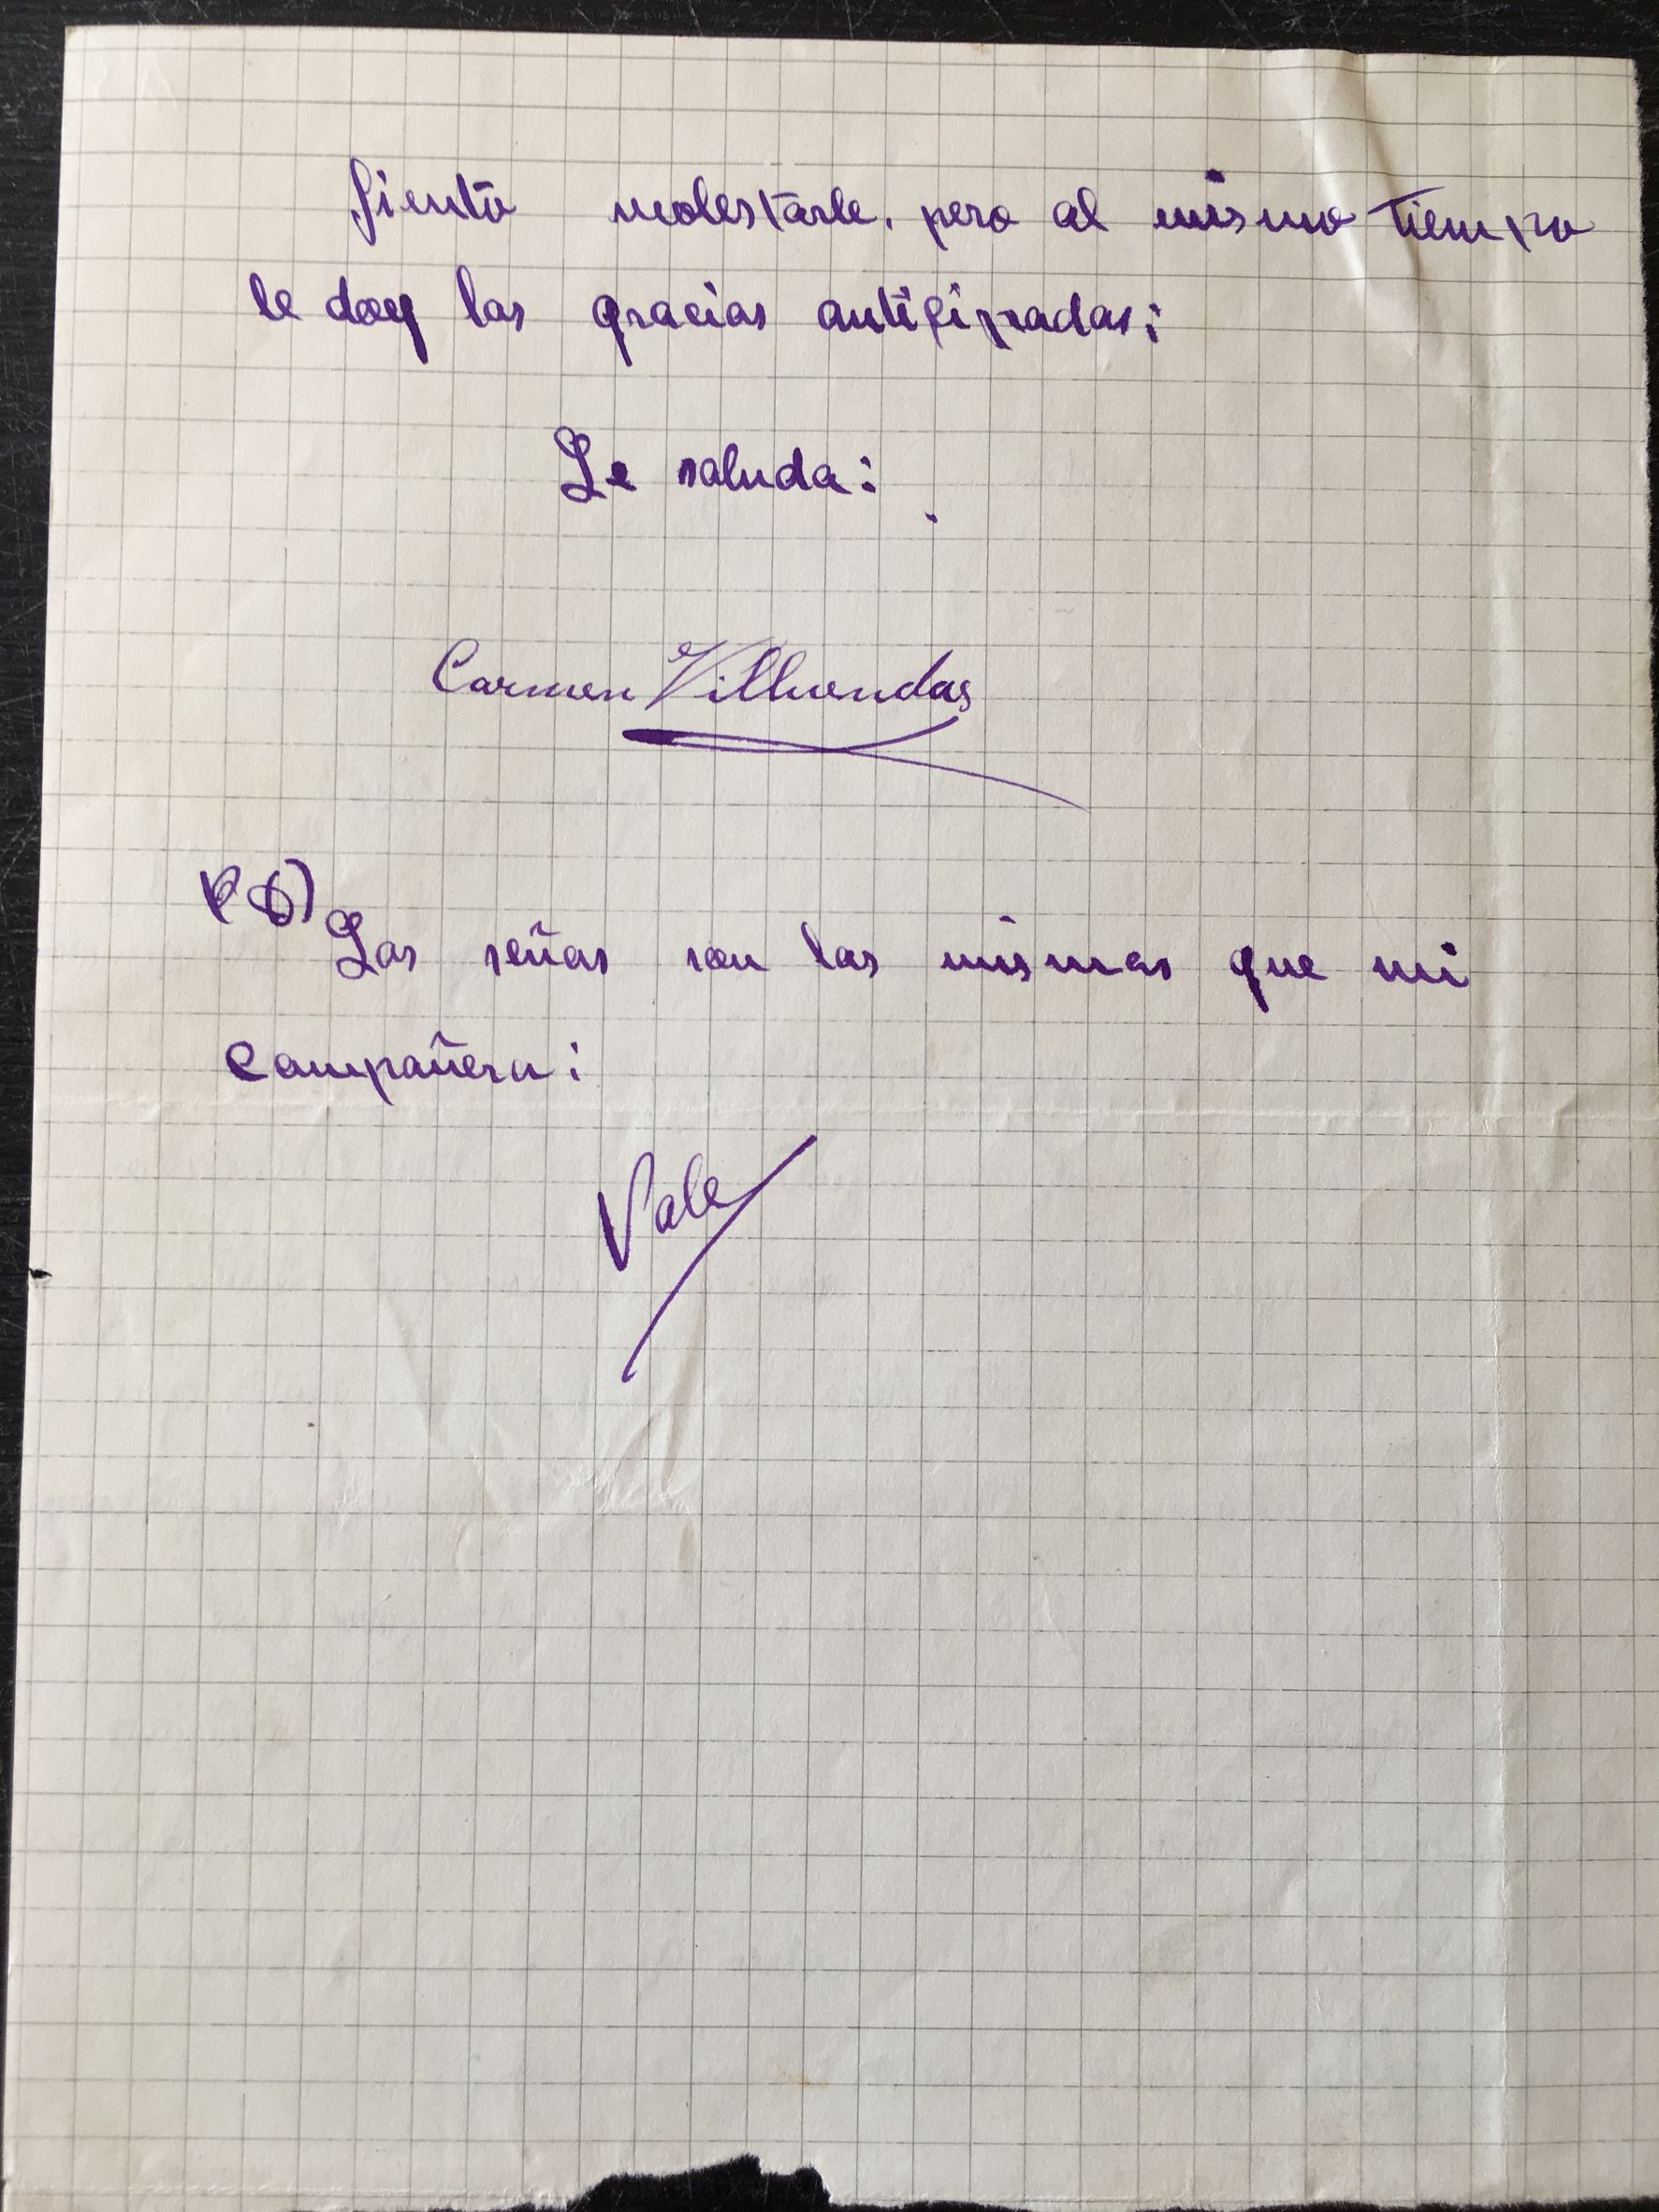 Siento molestarle, pero al mismo tiempo
le doy las gracias antisipadas;
Le saluda:
Carmen Villuendas
P D)
Las señas son las mismas que mi
compañera:
Vale